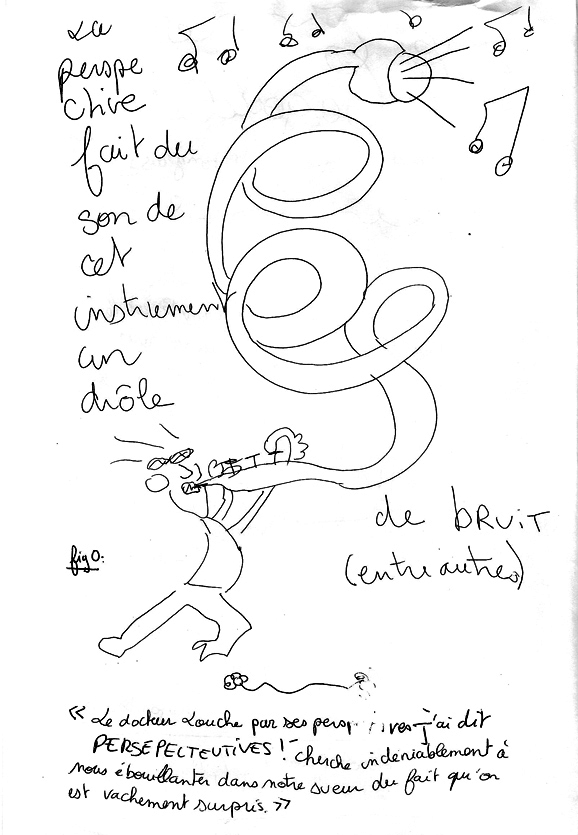 La
perspe
ctive
fait du
son de
cet
instrument
un
drôle
de BRUiT
(entre autres)
fig 0:
« Le docteur Louche par ses persp ives - j'ai dit
PERSEPECTEUTIVES ! - cherche indéniablement à
nous ébouillanter dans notre sueur du fait qu'on
est vachement surpris. »